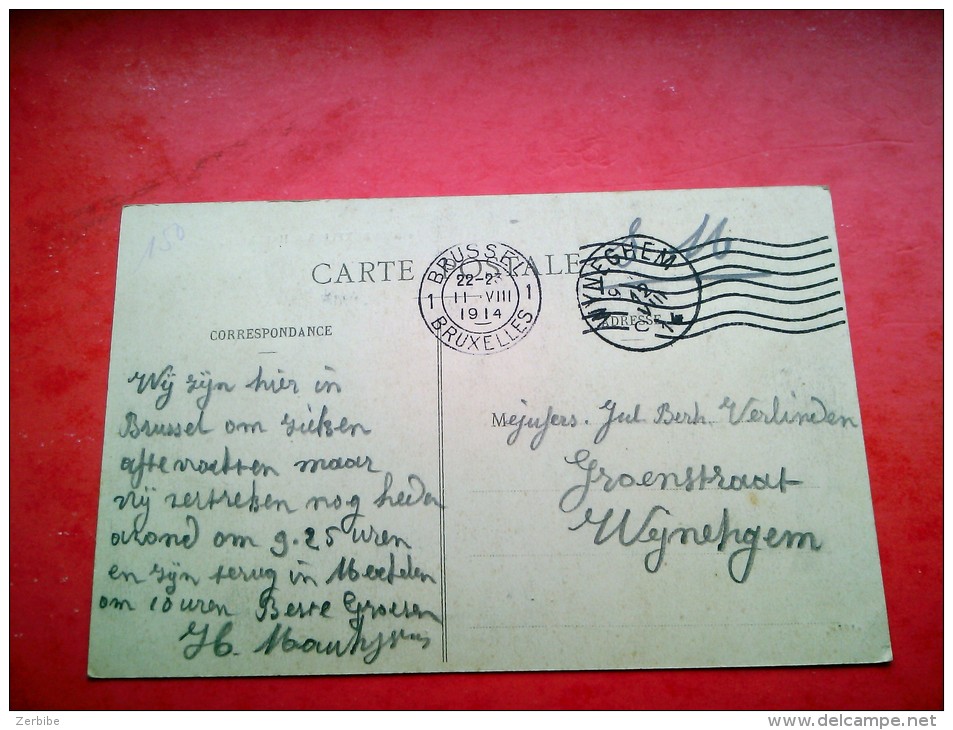 150
CARTE POSTALE
BRUSSEL
22-23
1 11 VIII 1
1914
BRUXELLES
WYNEGHEM
CORRESPONDANCE
ADRESSE
Wij zijn hier in
Brussel om zieken
aftewachten maar
wij vertreken nog heden
avond om 9.25 uren
en zijn terug in Mechelen
om 10 uren Beste Groeten
Mejufers. Jul Berh. Verlinden
Groenstraat
Wijnehgem
Zerbibe
www.delcampe.net